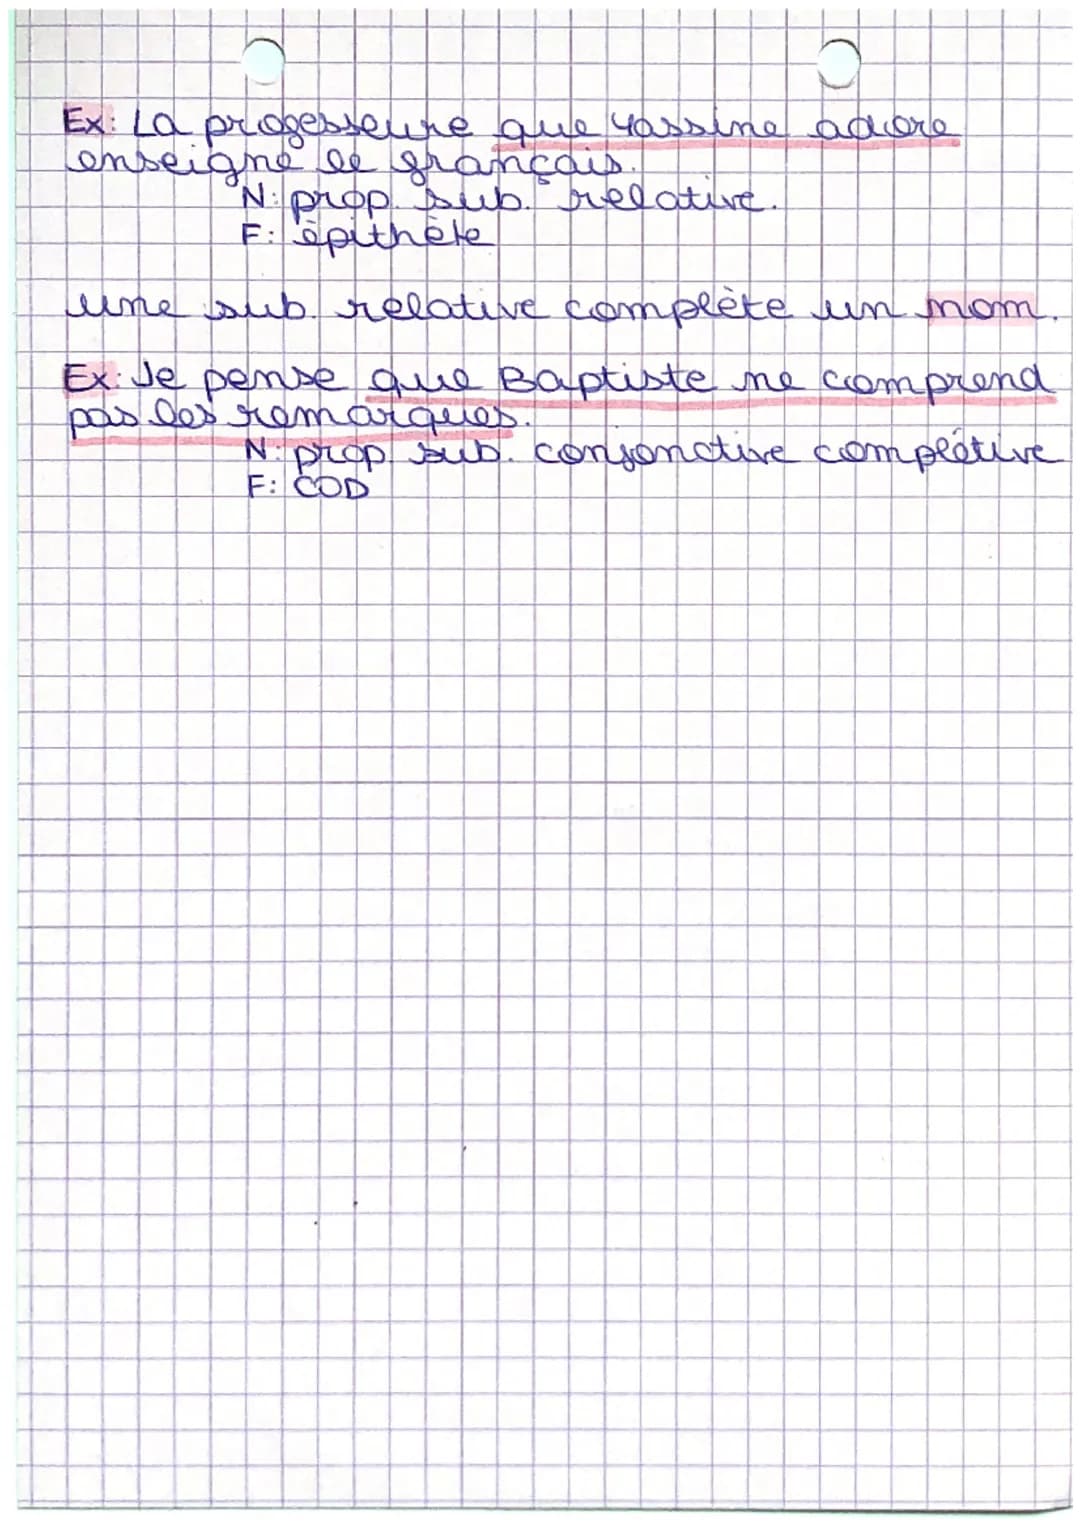 Ex: La professeure que Yassine adore
enseigne le français.
N: prop. sub. relative.
F: épithète
une sub. relative complète un nom.
Ex: Je pense que Baptiste ne comprend
pas les remarques.
N: prop. sub. conjonctive complétive
F: COD